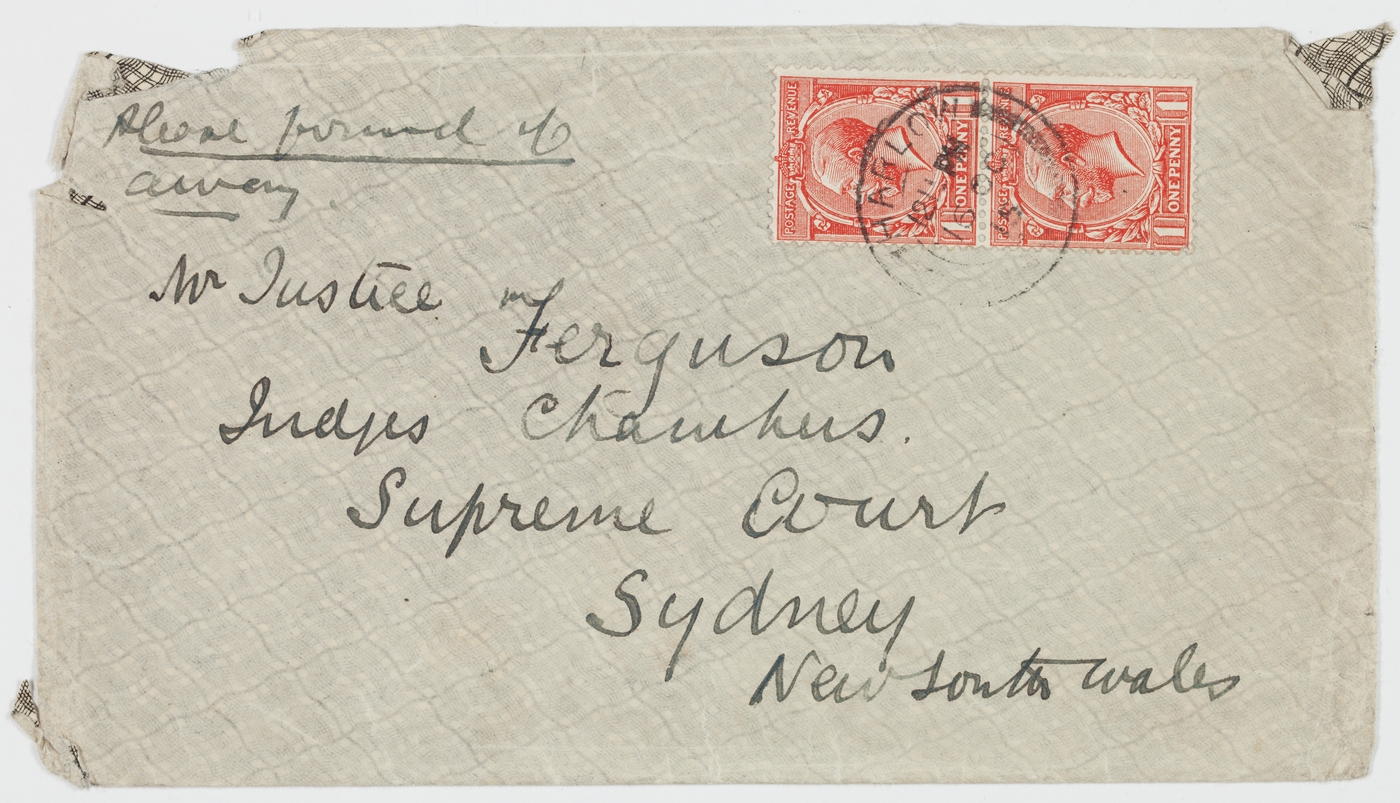 Please forward if
away.
Mr Justice
Ferguson
Judges Chambers.
Supreme Court
Sydney
New South Wales
POSTAGE REVENUE
ONE PENNY
POSTAGE
ONE PENNY
HARLOW